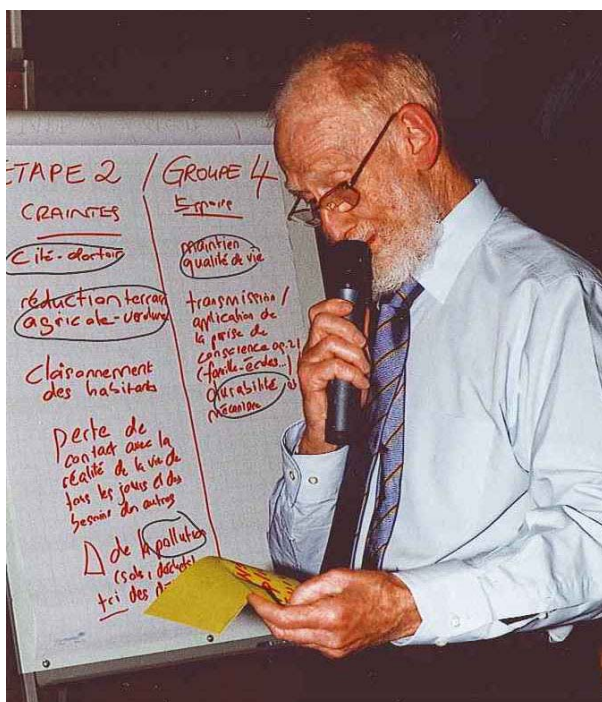 ETAPE 2 / GROUPE 4
CRAINTES
Cité-dortoir
réduction terrain
agricole-verdure
Cloisonnement
des habitants
Perte de
contact avec la
réalité de la vie de
tous les jours et des
besoins des autres
Δ de la pollution
(sols, déchets)
tri des
Espoirs
maintien
qualité de vie
transmission /
application de
la prise de
conscience ag.21
(famille-écoles...)
durabilité